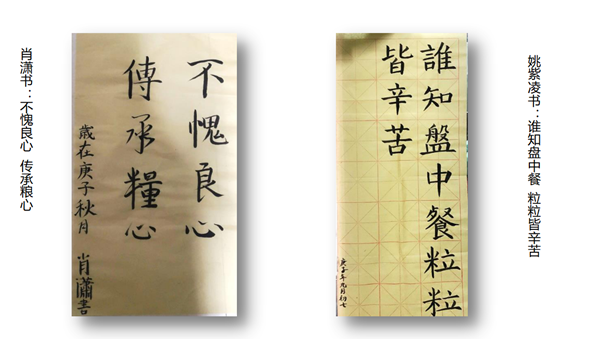 肖潇书：不愧良心 传承粮心
不愧良心
傳承糧心
歲在庚子秋月
肖瀟書
誰知盤中餐粒粒
皆辛苦
庚子年九月初七
姚紫凌书：谁知盘中餐 粒粒皆辛苦